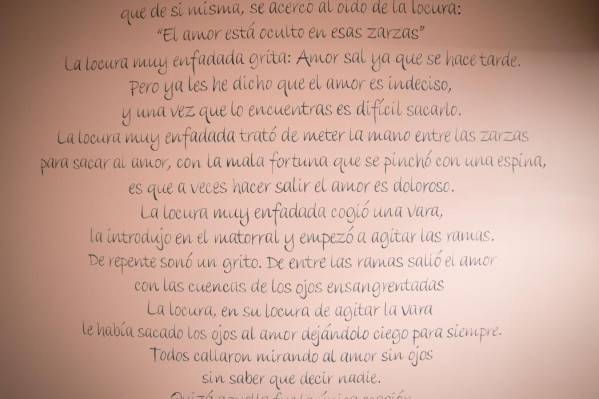 que de si misma, se acercó al oido de la locura:
“El amor está oculto en esas zarzas”
La locura muy enfadada grita: Amor sal ya que se hace tarde.
Pero ya les he dicho que el amor es indeciso,
y una vez que lo encuentras es difícil sacarlo.
La locura muy enfadada trató de meter la mano entre las zarzas
para sacar al amor, con la mala fortuna que se pinchó con una espina,
es que a veces hacer salir el amor es doloroso.
La locura muy enfadada cogió una vara,
la introdujo en el matorral y empezó a agitar las ramas.
De repente sonó un grito. De entre las ramas salió el amor
con las cuencas de los ojos ensangrentadas
La locura, en su locura de agitar la vara
le había sacado los ojos al amor dejándolo ciego para siempre.
Todos callaron mirando al amor sin ojos
sin saber que decir nadie.
Quizá